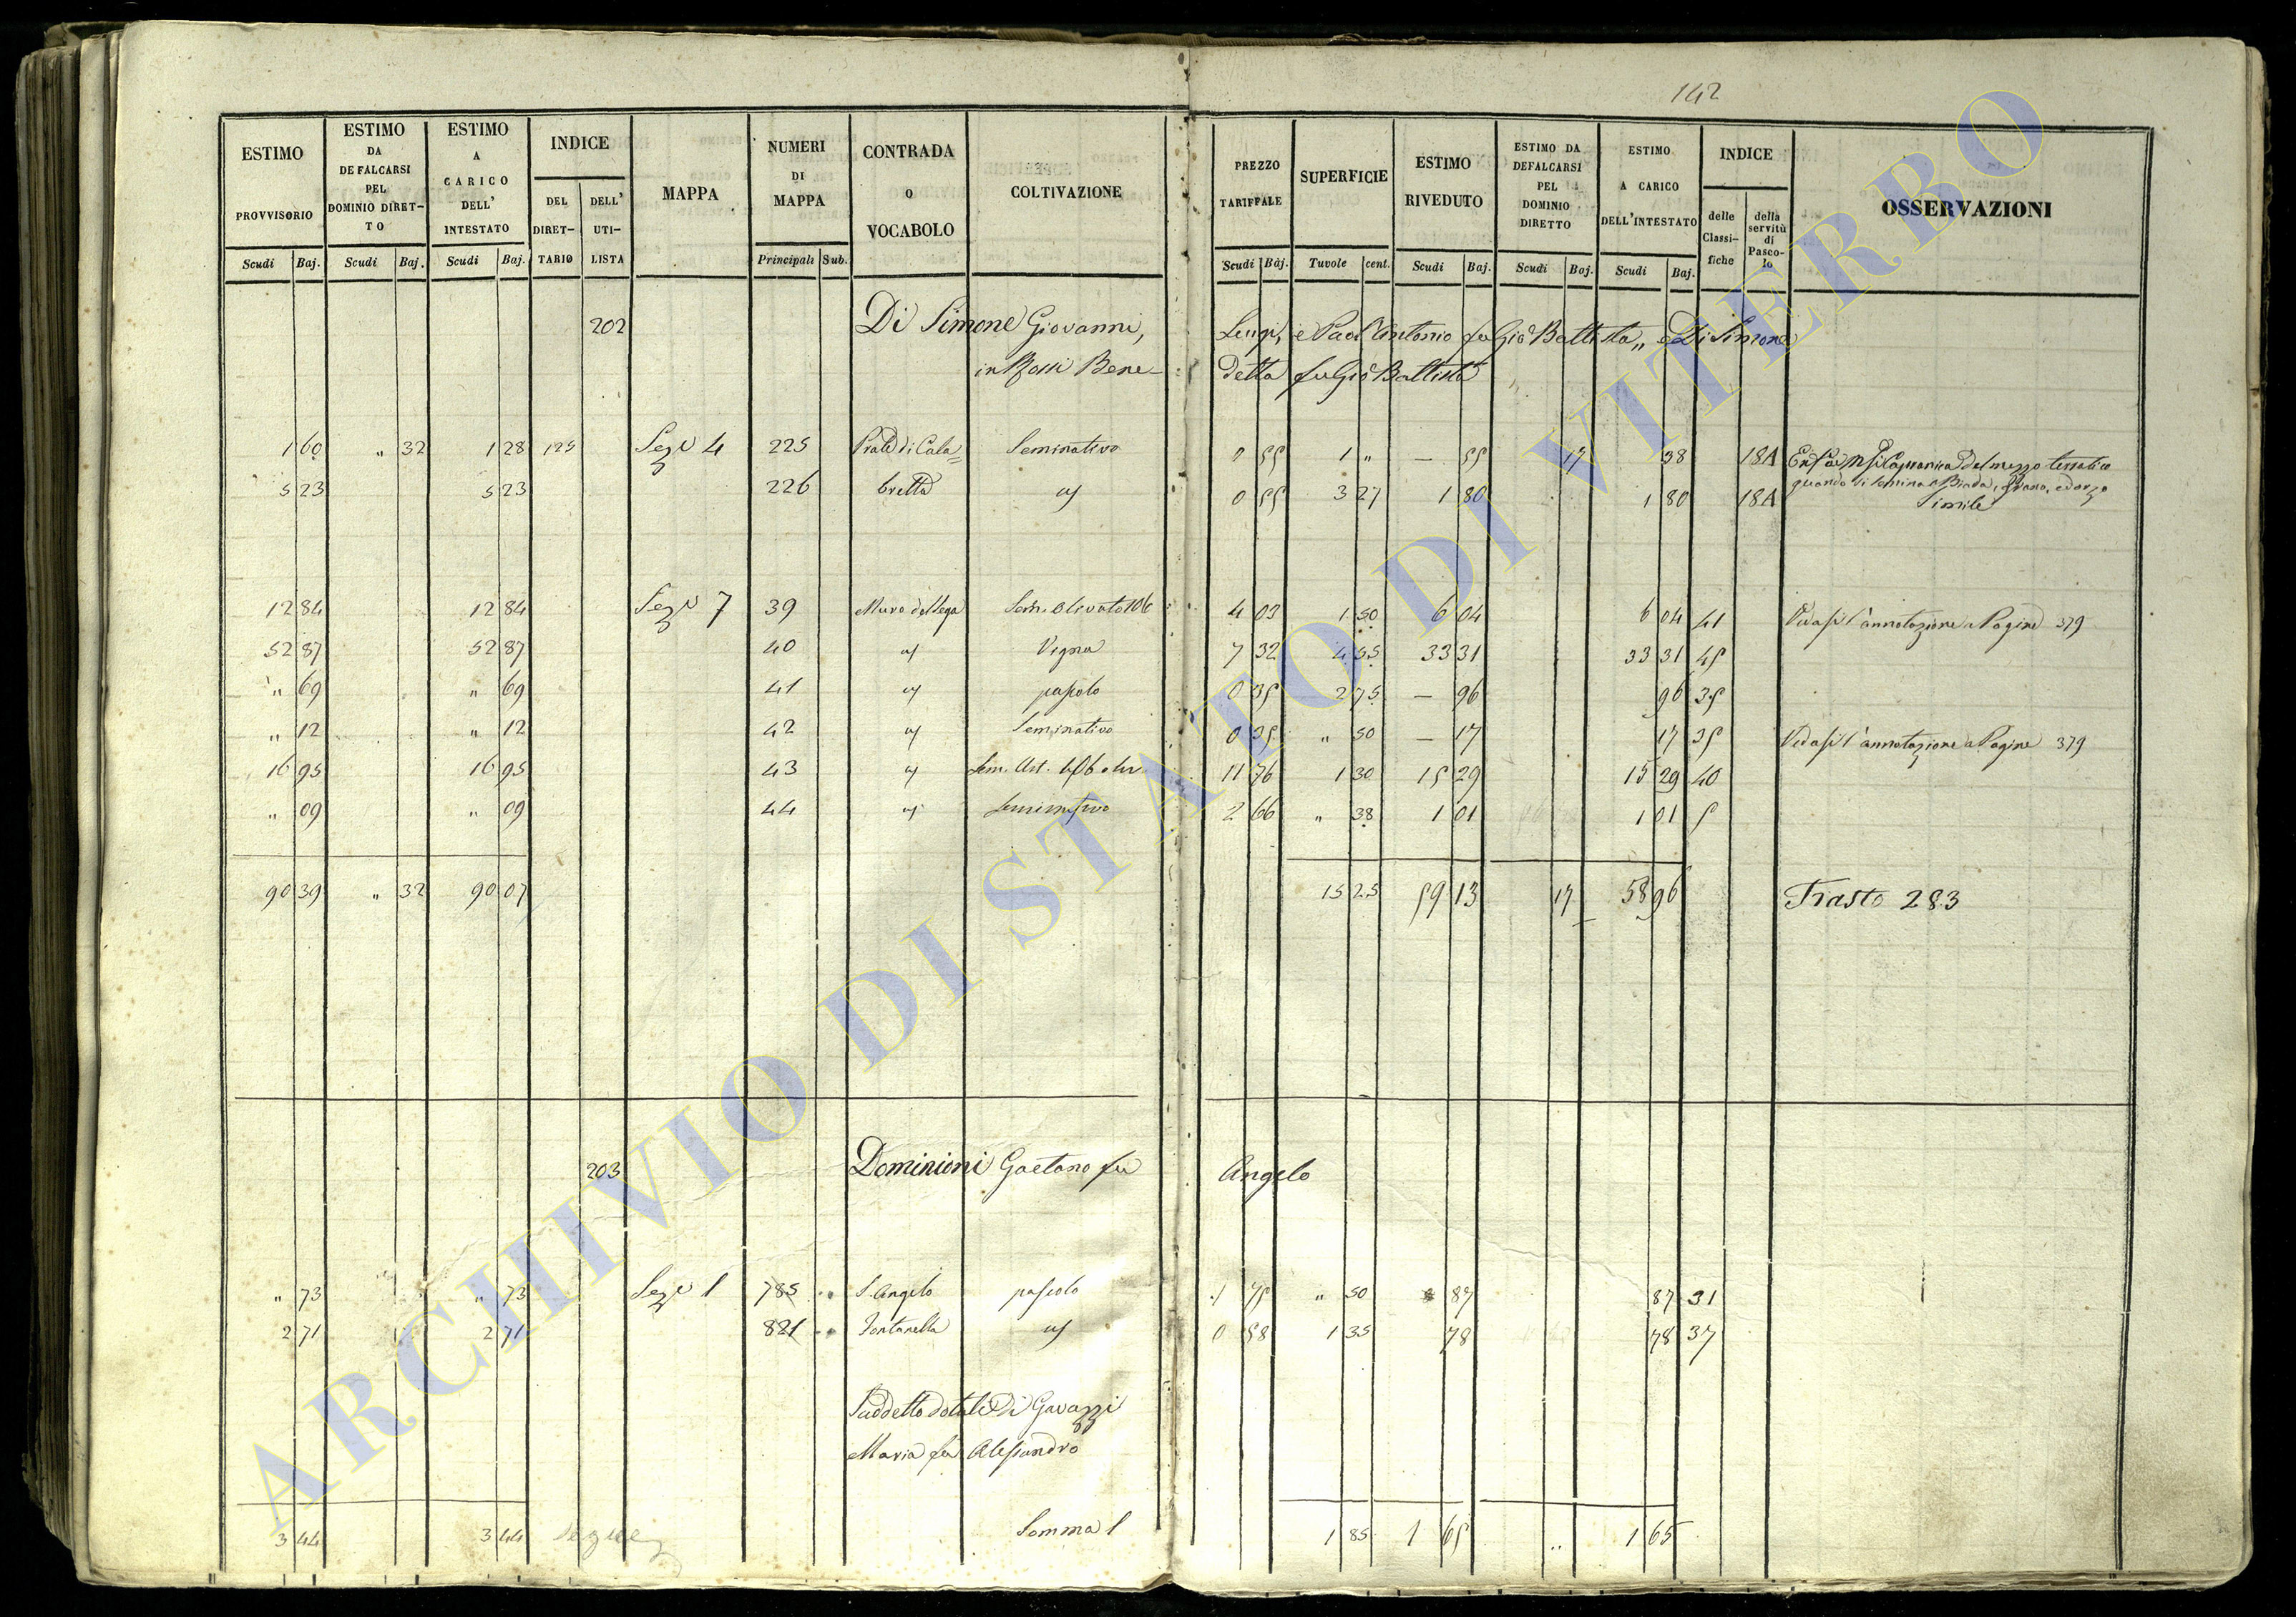 142
ESTIMO PROVVISORIO | ESTIMO DA DEFALCARSI PEL DOMINIO DIRETTO | ESTIMO A CARICO DELL' INTESTATO | INDICE DEL DIRETTARIO | DELL' UTILISTA | MAPPA | NUMERI DI MAPPA | CONTRADA O VOCABOLO | COLTIVAZIONE | PREZZO TARIFFALE | SUPERFICIE | ESTIMO RIVEDUTO | ESTIMO DA DEFALCARSI PEL DOMINIO DIRETTO | ESTIMO A CARICO DELL'INTESTATO | INDICE delle Classifiche | della servitù di Pascolo | OSSERVAZIONI
Scudi | Baj. | Scudi | Baj. | Scudi | Baj. | Principali | Sub. | Scudi | Baj. | Tavole | cent. | Scudi | Baj. | Scudi | Baj. | Scudi | Baj.
202 Di Simone Giovanni, Luigi, e Paol'Antonio fu Gio Battista,, e Di Simone
in Rossi Benedetta fu Gio Battista
1 60 " 32 1 28 125 Sez.e 4 225 Prato di Cala= Seminativo 0 55 1 " — 55 17 38 18A
5 23 5 23 226 bretta id 0 55 3 27 1 80 1 80 18A
Simile
12 84 12 84 Sez.e 7 39 Muro del Lega Sem. olivato 106 4 03 1 50 6 04 6 04 41 Vedasi l'annotazione a Pagine 379
52 87 52 87 40 id Vigna 7 32 4 55 33 31 33 31 45
" 69 " 69 41 id pascolo 0 35 2 75 — 96 96 35
" 12 " 12 42 id Seminativo 0 35 " 50 — 17 17 35 Vedasi l'annotazione a Pagine 379
16 95 16 95 43 id Sem. 11 76 1 30 15 29 15 29 40
" 09 " 09 44 id Seminativo 2 66 " 38 1 01 1 01 5
90 39 " 32 90 07 15 25 59 13 17 58 96 Trasto 283
203 Dominioni Gaetano fu Angelo
" 73 " 73 Sez.e 1 785 S. Angelo pascolo 1 75 " 50 87 87 31
2 71 2 71 821 Fontanella id 0 58 1 35 78 78 37
Suddetto dotali di Gavazzi
Maria fu Alessandro
3 44 3 44 Segue Somma 1 1 85 1 65 " 1 65
ARCHIVIO DI STATO DI VITERBO